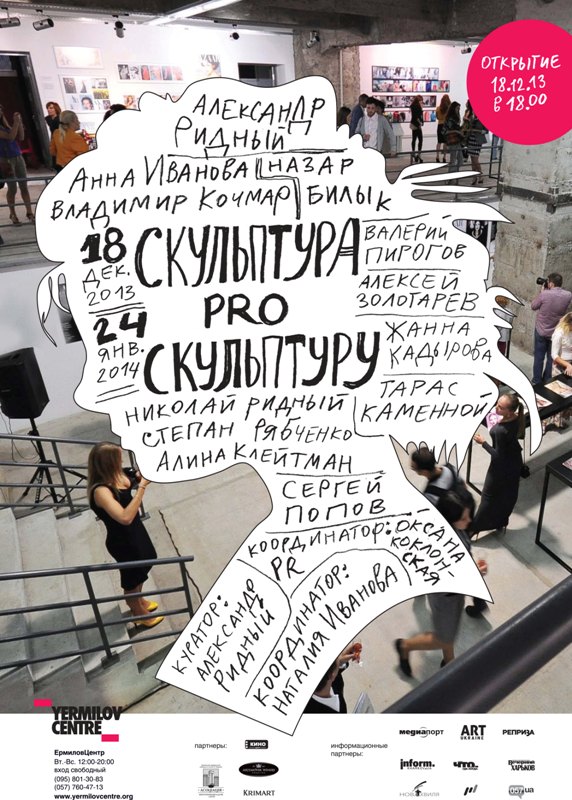 ОТКРЫТИЕ
18.12.13
В 18.00
АЛЕКСАНДР
РИДНЫЙ
АННА ИВАНОВА
НАЗАР
БИЛЫК
ВЛАДИМИР КОЧМАР
18
ДЕК.
2013
24
ЯНВ.
2014
СКУЛЬПТУРА
PRO
СКУЛЬПТУРУ
ВАЛЕРИЙ
ПИРОГОВ
АЛЕКСЕЙ
ЗОЛОТАРЕВ
ЖАННА
КАДЫРОВА
ТАРАС
КАМЕННОЙ
НИКОЛАЙ РИДНЫЙ
СТЕПАН РЯБЧЕНКО
АЛИНА КЛЕЙТМАН
СЕРГЕЙ
ПОПОВ
КООРДИНАТОР: ОКСАНА
КОКЛОН-
СКАЯ
КУРАТОР:
АЛЕКСАНДР
РИДНЫЙ
PR
КООРДИНАТОР:
НАТАЛИЯ ИВАНОВА
YERMILOV
CENTRE
ЕрмиловЦентр
Вт.-Вс. 12:00-20:00
вход свободный
(095) 801-30-83
(057) 760-47-13
www.yermilovcentre.org
партнеры:
КИНО
KRIMART
информационные
партнеры:
медиапорт
ART
UKRAINE
РЕПРИЗА
inform.
что.
Вечерний
ХАРЬКОВ
057.ua